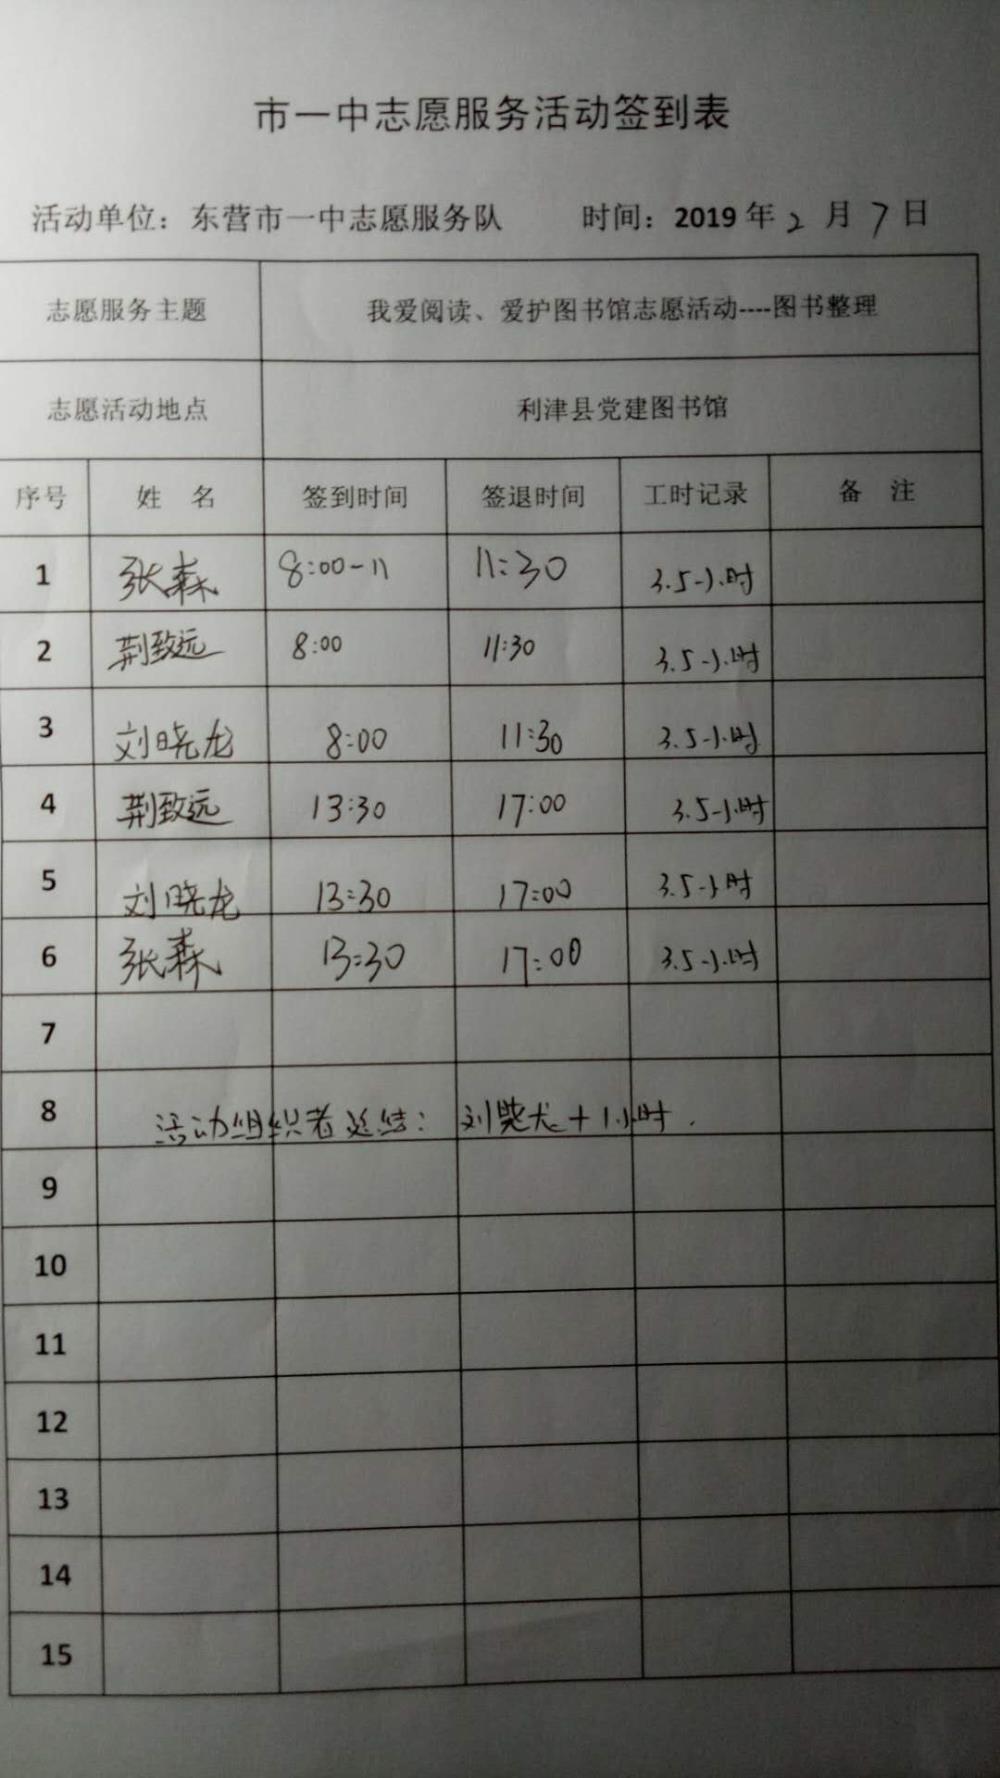 市一中志愿服务活动签到表
活动单位：东营市一中志愿服务队 时间：2019年2月7日
志愿服务主题 我爱阅读、爱护图书馆志愿活动----图书整理
志愿活动地点 利津县党建图书馆
序号 姓 名 签到时间 签退时间 工时记录 备 注
1 张森 8:00-11 11:30 3.5小时
2 荆致远 8:00 11:30 3.5小时
3 刘晓龙 8:00 11:30 3.5小时
4 荆致远 13:30 17:00 3.5小时
5 刘晓龙 13:30 17:00 3.5小时
6 张森 13:30 17:00 3.5小时
7
8 活动组织者总结： 刘 + 1小时.
9
10
11
12
13
14
15